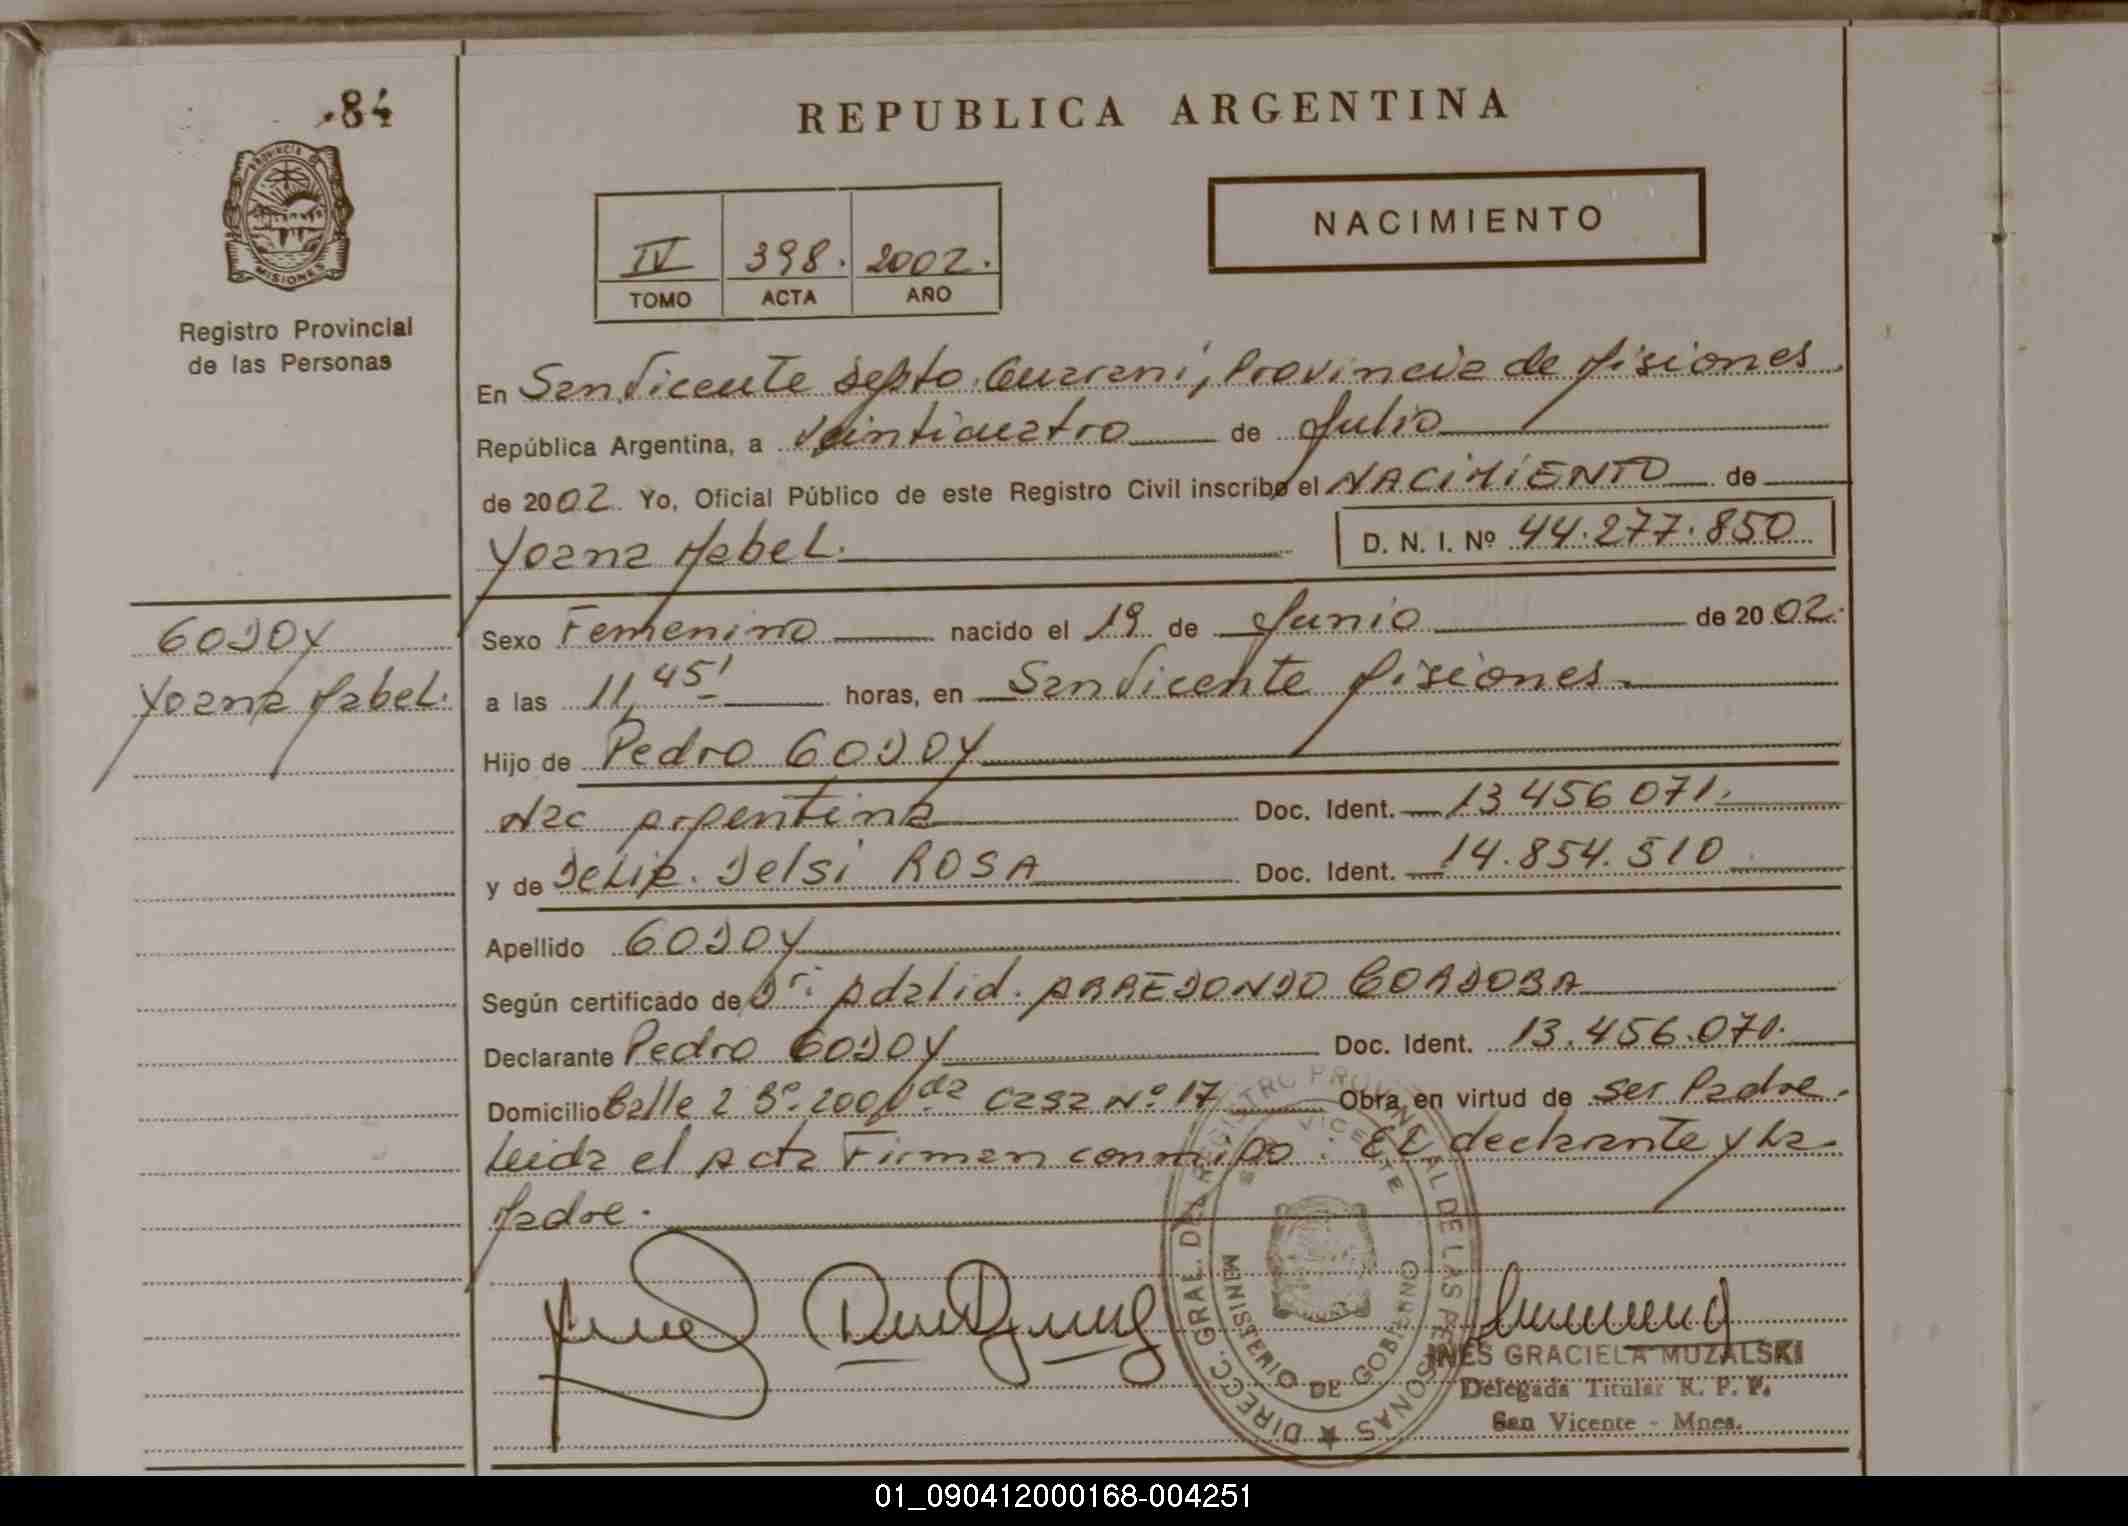 84
PROVINCIA DE
MISIONES
Registro Provincial
de las Personas
REPUBLICA ARGENTINA
NACIMIENTO
IV 398. 2002.
TOMO ACTA AÑO
En San Vicente Depto. Guarani, Provincia de Misiones.
República Argentina, a Veinticuatro de Julio
de 2002. Yo, Oficial Público de este Registro Civil inscribo el NACIMIENTO de
Yoana Mabel. D. N. I. Nº 44.277.850
GODOY
Yoana Mabel.
Sexo Femenino nacido el 19 de Junio de 2002.
a las 11,45' horas, en San Vicente Misiones.
Hijo de Pedro GODOY
Nac Argentina Doc. Ident. 13.456.071.
y de Delia. Delsi ROSA Doc. Ident. 14.854.510
Apellido GODOY
Según certificado de Dr. Adalid. ARREDONDO CORDOBA
Declarante Pedro GODOY Doc. Ident. 13.456.071.
Domicilio Calle 2 Bº. 200 Vda Casa Nº 17 Obra en virtud de ser Padre.
Leida el Acta Firman conmigo. El declarante y la
Madre.
DIRECC. GRAL. DEL REGISTRO PROVINCIAL DE LAS PERSONAS
S. VICENTE
MINISTERIO DE GOBIERNO
INES GRACIELA MUZALSKI
Delegada Titular R. P. P.
San Vicente - Mnes.
01_090412000168-004251